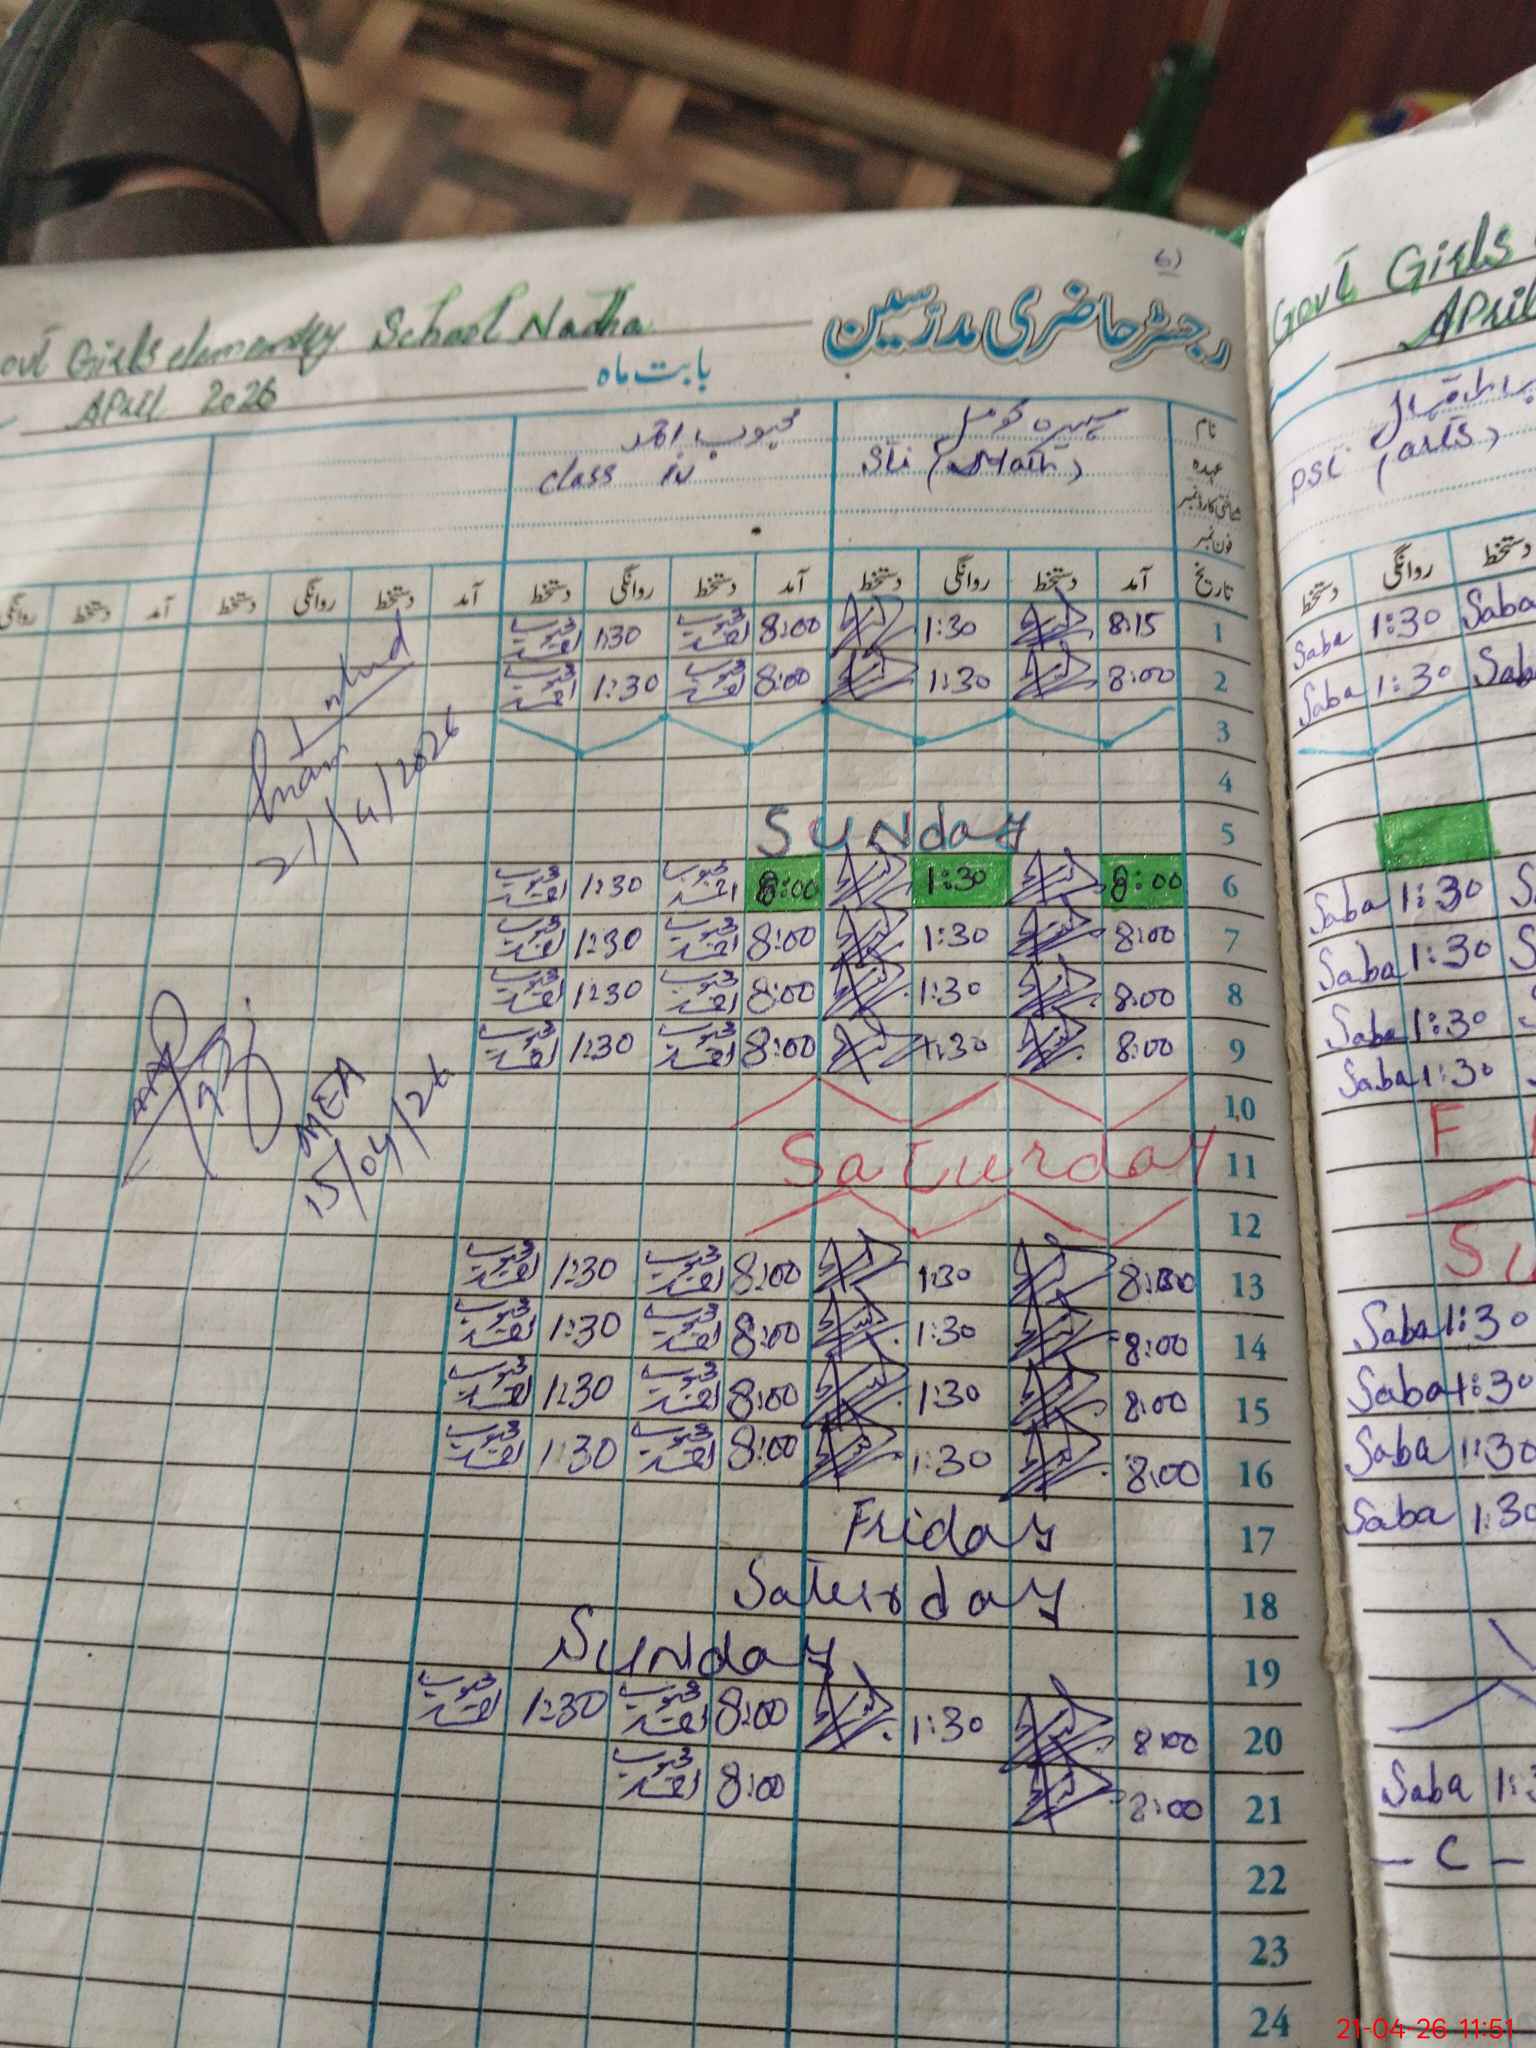 6)
Govt Girls elementry School Nadha
رجسٹر حاضری مدرسین
April 2026
بابت ماہ
نام
محبوب احمد
عہدہ
STI (Math)
class IV
شناختی کارڈ نمبر
فون نمبر
تاریخ آمد دستخط روانگی دستخط آمد دستخط روانگی دستخط آمد دستخط روانگی دستخط آمد دستخط روانگی
1 8:15 1:30 8:00 محبوب احمد 1:30 محبوب احمد
2 8:00 1:30 8:00 محبوب احمد 1:30 محبوب احمد
3
4
5 Sunday
6 8:00 1:30 8:00 محبوب احمد 1:30 محبوب احمد
7 8:00 1:30 8:00 محبوب احمد 1:30 محبوب احمد
8 8:00 1:30 8:00 محبوب احمد 1:30 محبوب احمد
9 8:00 1:30 8:00 محبوب احمد 1:30 محبوب احمد
10
11 Saturday
12
13 8:00 1:30 8:00 محبوب احمد 1:30 محبوب احمد
14 8:00 1:30 8:00 محبوب احمد 1:30 محبوب احمد
15 8:00 1:30 8:00 محبوب احمد 1:30 محبوب احمد
16 8:00 1:30 8:00 محبوب احمد 1:30 محبوب احمد
17 Friday
18 Saturday
19 Sunday
20 8:00 1:30 8:00 محبوب احمد 1:30 محبوب احمد
21 8:00 8:00 محبوب احمد
22
23
24
21/4/2026
MEA
15/04/26
Govt Girls
April
PST (arts)
دستخط روانگی دستخط
Saba 1:30 Saba
Saba 1:30 Saba
Saba 1:30 S
Saba 1:30 S
Saba 1:30
Saba 1:30
F
Su
Saba 1:30
Saba 1:30
Saba 1:30
Saba 1:30
Saba 1:3
- C -
21-04-26 11:51